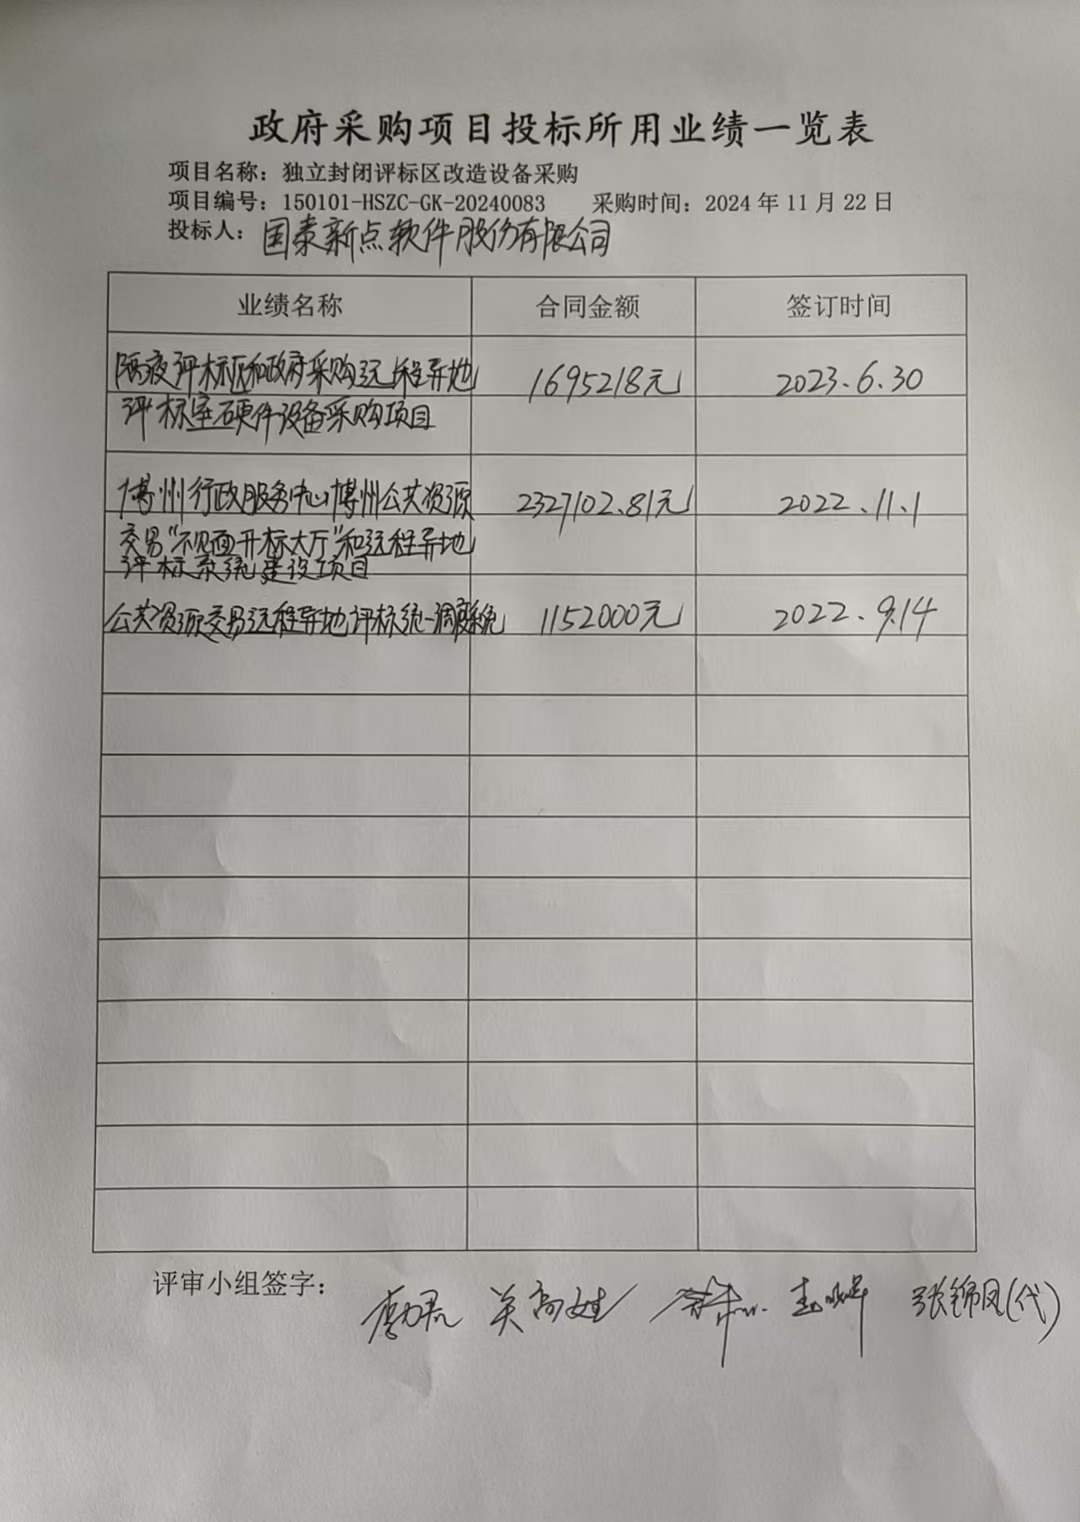 政府采购项目投标所用业绩一览表
项目名称：独立封闭评标区改造设备采购
项目编号：150101-HSZC-GK-20240083 采购时间：2024 年 11 月 22 日
投标人：国泰新点软件股份有限公司
业绩名称 合同金额 签订时间
隔夜评标区和政府采购远程异地 1695218元 2023.6.30
评标室硬件设备采购项目
博州行政服务中心博州公共资源 2327102.81元 2022.11.1
交易“不见面开标大厅”和远程异地
评标系统建设项目
公共资源交易远程异地评标统一调度系统 1152000元 2022.9.14
评审小组签字：
张锦凤(代)